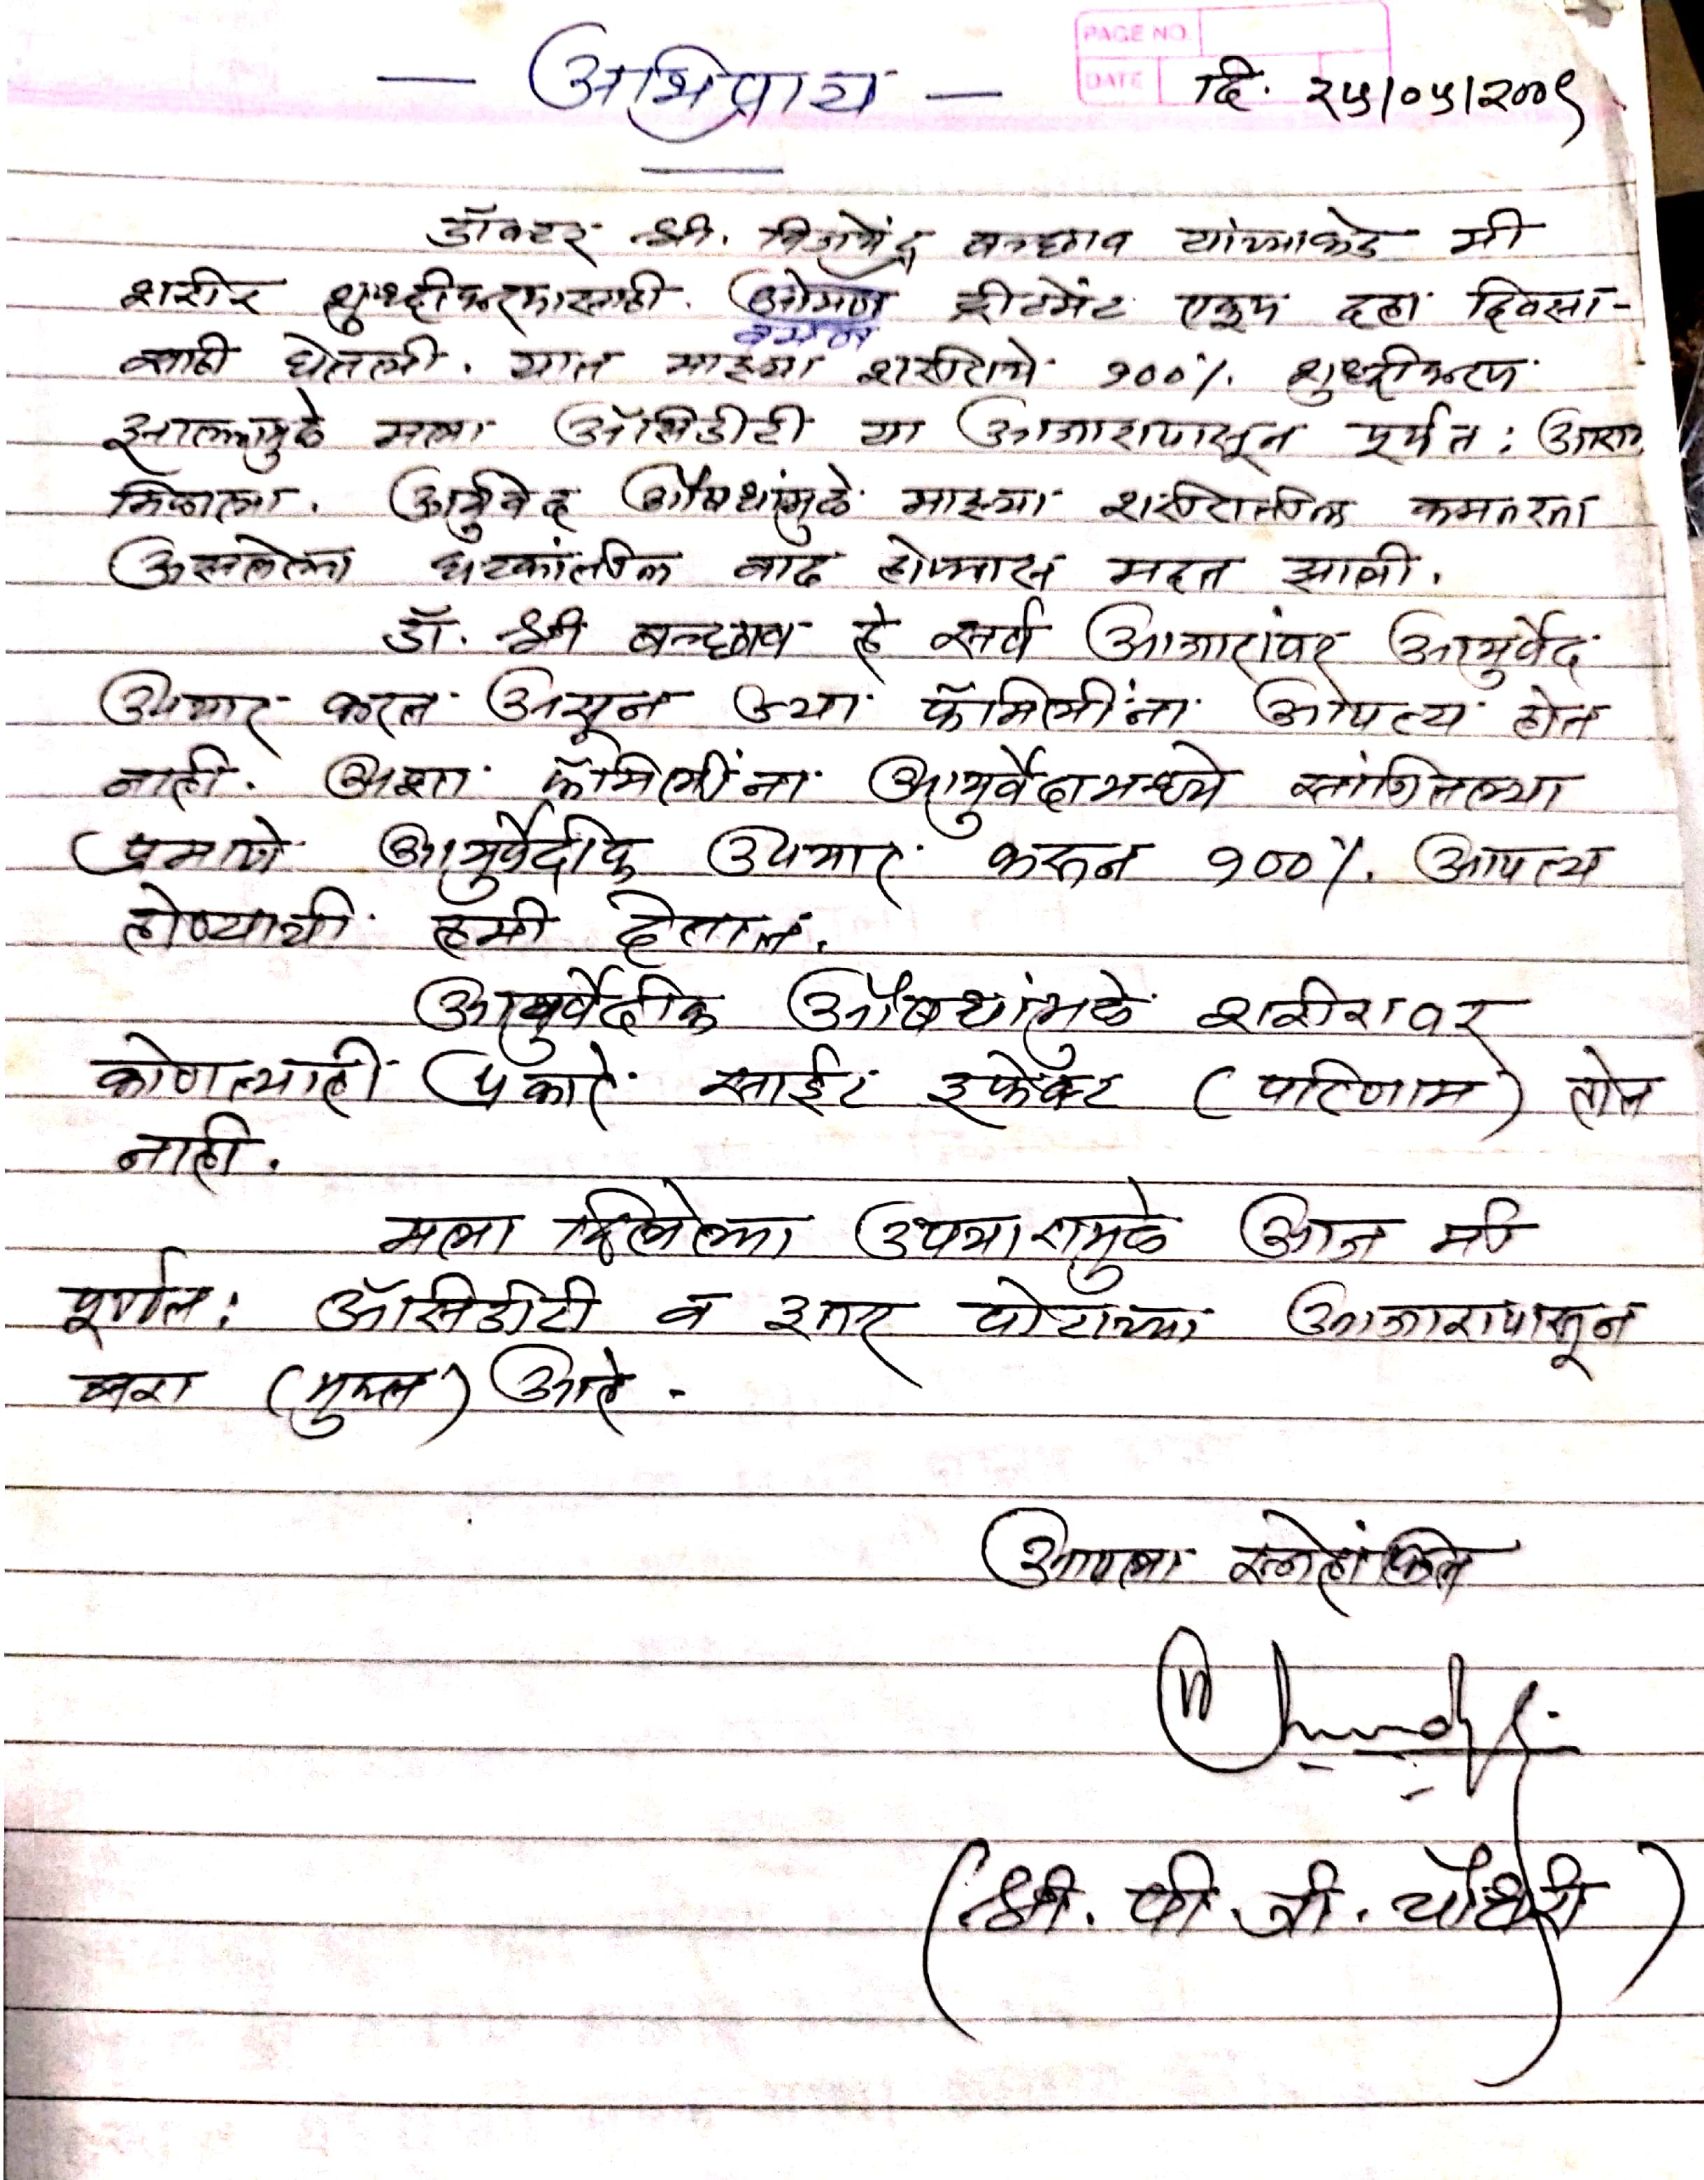 PAGE NO.
DATE
— अभिप्राय — दि. २५/०५/२००९
डॉक्टर श्री. बच्छाव यांच्याकडे मी
शरीर शुध्दीकरणासाठी. ट्रीटमेंट एकूण दहा दिवसा-
वमन
साठी घेतली. यात माझ्या शरीराचे १००%. शुध्दीकरण
झाल्यामुळे मला ॲसिडीटी या आजारापासून पूर्णत: आराम
मिळाला. आर्युवेद औषधांमुळे माझ्या शरीरातील कमतरता
असलेल्या घटकांतील वाढ होण्यास मदत झाली.
डॉ. श्री बच्छाव हे सर्व आजारांवर आयुर्वेद
उपचार करत असून ज्या फॅमिलींना आपत्य होत
नाही. अशा फॅमिलींना आयुर्वेदामध्ये सांगितल्या
प्रमाणे आयुर्वेदीक उपचार करून १००%. आपत्य
होण्याची हमी देतात.
आयुर्वेदीक औषधांमुळे शरीरावर
कोणत्याही प्रकारे साईट इफेक्ट (परिणाम) होत
नाही.
मला दिलेल्या उपचारामुळे आज मी
पूर्णत: ॲसिडीटी व इतर पोटाच्या आजारापासून
बरा (मुक्त) आहे.
आपला स्नेहांकित
(श्री. पी. जी. चौधरी)